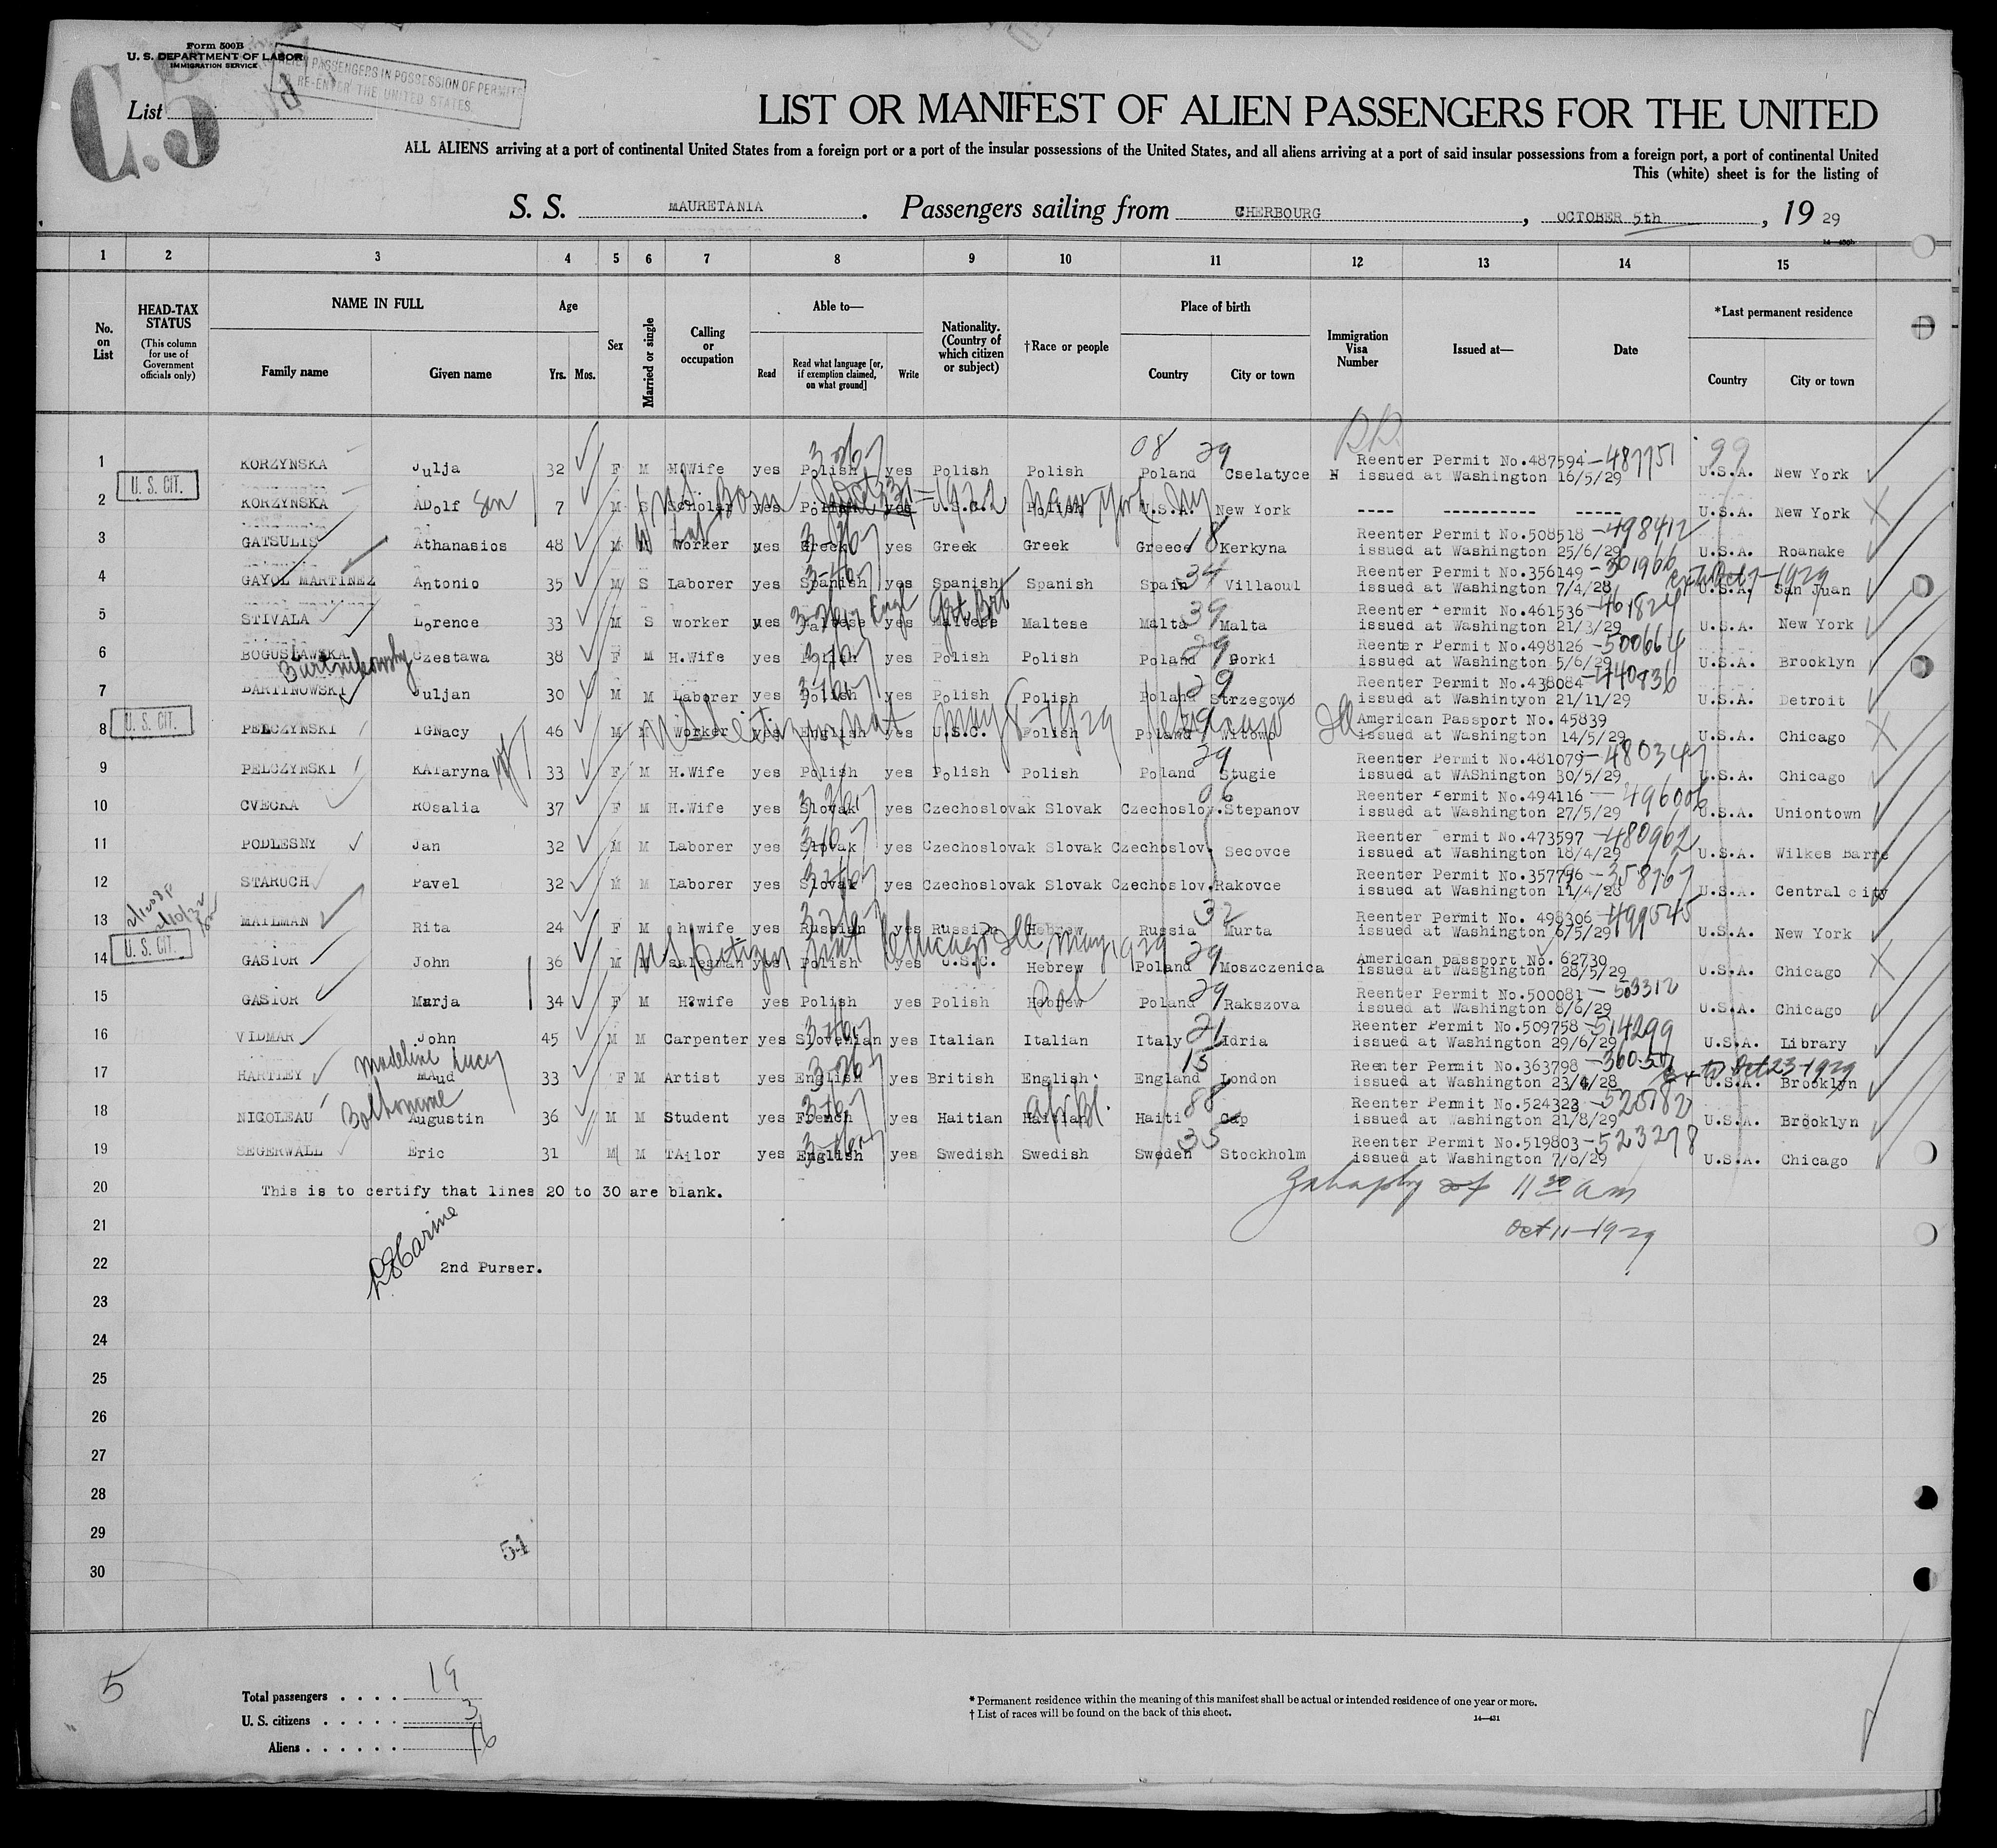 Form 500B
U. S. DEPARTMENT OF LABOR
IMMIGRATION SERVICE
C.5
ALIEN PASSENGERS IN POSSESSION OF PERMITS
RE-ENTER THE UNITED STATES.
List
LIST OR MANIFEST OF ALIEN PASSENGERS FOR THE UNITED
ALL ALIENS arriving at a port of continental United States from a foreign port or a port of the insular possessions of the United States, and all aliens arriving at a port of said insular possessions from a foreign port, a port of continental United
This (white) sheet is for the listing of
S. S. MAURETANIA. Passengers sailing from CHERBOURG, OCTOBER 5th, 19 29
1 2 3 4 5 6 7 8 9 10 11 12 13 14 15
No. on List
HEAD-TAX STATUS (This column for use of Government officials only)
NAME IN FULL Family name Given name
Age Yrs. Mos.
Sex
Married or single
Calling or occupation
Able to— Read Read what language [or, if exemption claimed, on what ground] Write
Nationality. (Country of which citizen or subject)
†Race or people
Place of birth Country City or town
Immigration Visa Number
Issued at—
Date
*Last permanent residence Country City or town
08 29 99
1 KORZYNSKA Julja 32 F M H.Wife yes Polish yes Polish Polish Poland Cselatyce N Reenter Permit No.487594-487751 issued at Washington 16/5/29 U.S.A. New York
U. S. CIT.
2 KORZYNSKA ADolf Son 7 M S Scholar yes Polish yes U.S.C. Polish U.S.A. New York ---- ---------- ----- U.S.A. New York
U.S. Born 1922 New York NY
3 GATSULIS Athanasios 48 M M Worker yes Greek yes Greek Greek Greece 18 Kerkyna Reenter Permit No.508518-498412 issued at Washington 25/6/29 U.S.A. Roanake
4 GAYOL MARTINEZ Antonio 35 M S Laborer yes Spanish yes Spanish Spanish Spain 34 Villaoul Reenter Permit No.356149-301966 issued at Washington 7/4/28 U.S.A. San Juan
5 STIVALA Lorence 33 M S worker yes Maltese Engl yes Maltese Maltese Malta 39 Malta Reenter Permit No.461536-461824 issued at Washington 21/3/29 U.S.A. New York
6 BOGUSLAWSKA Czestawa 38 F M H.Wife yes Polish yes Polish Polish Poland 29 Gorki Reenter Permit No.498126-500664 issued at Washington 5/6/29 U.S.A. Brooklyn
Burtnikowsky
7 BARTNOWSKI Juljan 30 M M Laborer yes Polish yes Polish Polish Poland 29 Strzegowo Reenter Permit No.438084-440836 issued at Washintyon 21/11/29 U.S.A. Detroit
U. S. CIT.
8 PELCZYNSKI IGNacy 46 M M Worker yes English yes U.S.C. Polish Poland Witowo American Passport No. 45839 issued at Washington 14/5/29 U.S.A. Chicago
US Citizen Nat May 8-1929 Chicago Ill
9 PELCZYNSKI KATaryna 33 F M H.Wife yes Polish yes Polish Polish Poland 29 Stugie Reenter Permit No.481079-480347 issued at WAShington 30/5/29 U.S.A. Chicago
10 CVECKA ROsalia 37 F M H.Wife yes Slovak yes Czechoslovak Slovak Czechoslov. 06 Stepanov Reenter Permit No.494116-496006 issued at Washington 27/5/29 U.S.A. Uniontown
11 PODLESNY Jan 32 M M Laborer yes Slovak yes Czechoslovak Slovak Czechoslov. Secovce Reenter Permit No.473597-480962 issued at Washington 18/4/29 U.S.A. Wilkes Barre
12 STARUCH Pavel 32 M M Laborer yes Slovak yes Czechoslovak Slovak Czechoslov. Rakovce Reenter Permit No.357796-358767 issued at Washington 11/4/28 U.S.A. Central city
13 MAILMAN Rita 24 F M h wife yes Russian yes Russian Hebrew Russia 32 Murta Reenter Permit No. 498306-499545 issued at Washington 6/5/29 U.S.A. New York
U. S. CIT.
14 GASIOR John 36 M M salesman yes Polish yes U.S.C. Hebrew Poland 29 Moszczenica American passport No. 62730 issued at Wasgington 28/5/29 U.S.A. Chicago
US Citizen Nat Chicago Ill May, 1929
15 GASIOR Marja 34 F M H.wife yes Polish yes Polish Hebrew Pol Poland 29 Rakszova Reenter Permit No.500081-503312 issued at Washington 8/6/29 U.S.A. Chicago
16 VIDMAR John 45 M M Carpenter yes Slovenian yes Italian Italian Italy 21 Idria Reenter Permit No.509758-514299 issued at Washington 29/6/29 U.S.A. Library
Madeline Lucy
17 HARTLEY MAud 33 F M Artist yes English yes British English England 15 London Reenter Permit No.363798 issued at Washington 23/4/28 Ex to Oct 23-1929 U.S.A. Brooklyn
18 NICOLEAU Augustin 36 M M Student yes French yes Haitian Haitian Afr Bl. Haiti 88 Cap Reenter Permit No.524323-520182 issued at Washington 21/8/29 U.S.A. Brooklyn
19 SEGERWALL Eric 31 M M TAilor yes English yes Swedish Swedish Sweden 35 Stockholm Reenter Permit No.519803-523278 issued at Washington 7/8/29 U.S.A. Chicago
20 This is to certify that lines 20 to 30 are blank.
11 30 am
21 Oct 11-1929
22 2nd Purser.
23
24
25
26
27
28
29
54
30
5
Total passengers . . . . 19
U. S. citizens . . . . . 3
Aliens . . . . . . 16
* Permanent residence within the meaning of this manifest shall be actual or intended residence of one year or more.
† List of races will be found on the back of this sheet.
14—431